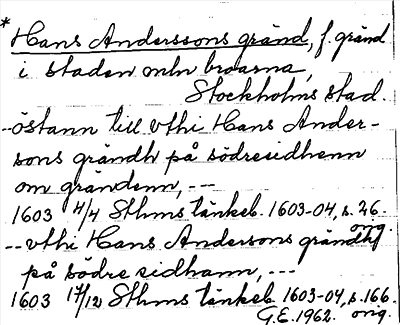 * Hans Anderssons gränd, f. gränd
i staden mln broarna,
Stockholms stad.
--östann till vthi Hans Ander-
sons grändh på södresidhenn
om grändenn, ---
1603 4/4 Sthms tänkeb. 1603-04, s. 26.
orig.
-- vthi Hans Andersons grändh
på södre sidhann, ---
1603 17/12 Sthms tänkeb 1603-04, s. 166.
G.E. 1962. orig.